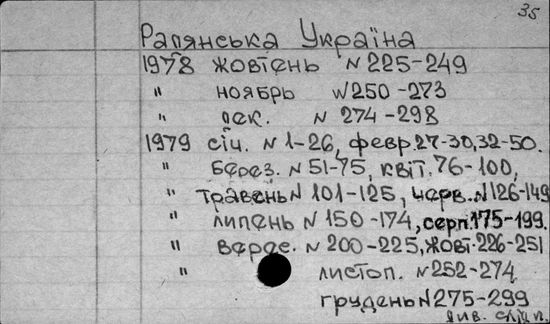 35
Радянська Україна
1978 жовтень N 225-249
" ноябрь N 250-273
" дек. N 274-298
1979 січ. N 1-26, февр. 27-30, 32-50.
" берез. N 51-75, квіт. 76-100,
" травень N 101-125, черв. N 126-149
" липень N 150-174, серп. 175-199.
" верес. N 200-225, жовт. 226-251
" листоп. N 252-274
грудень N 275-299
див. слід.